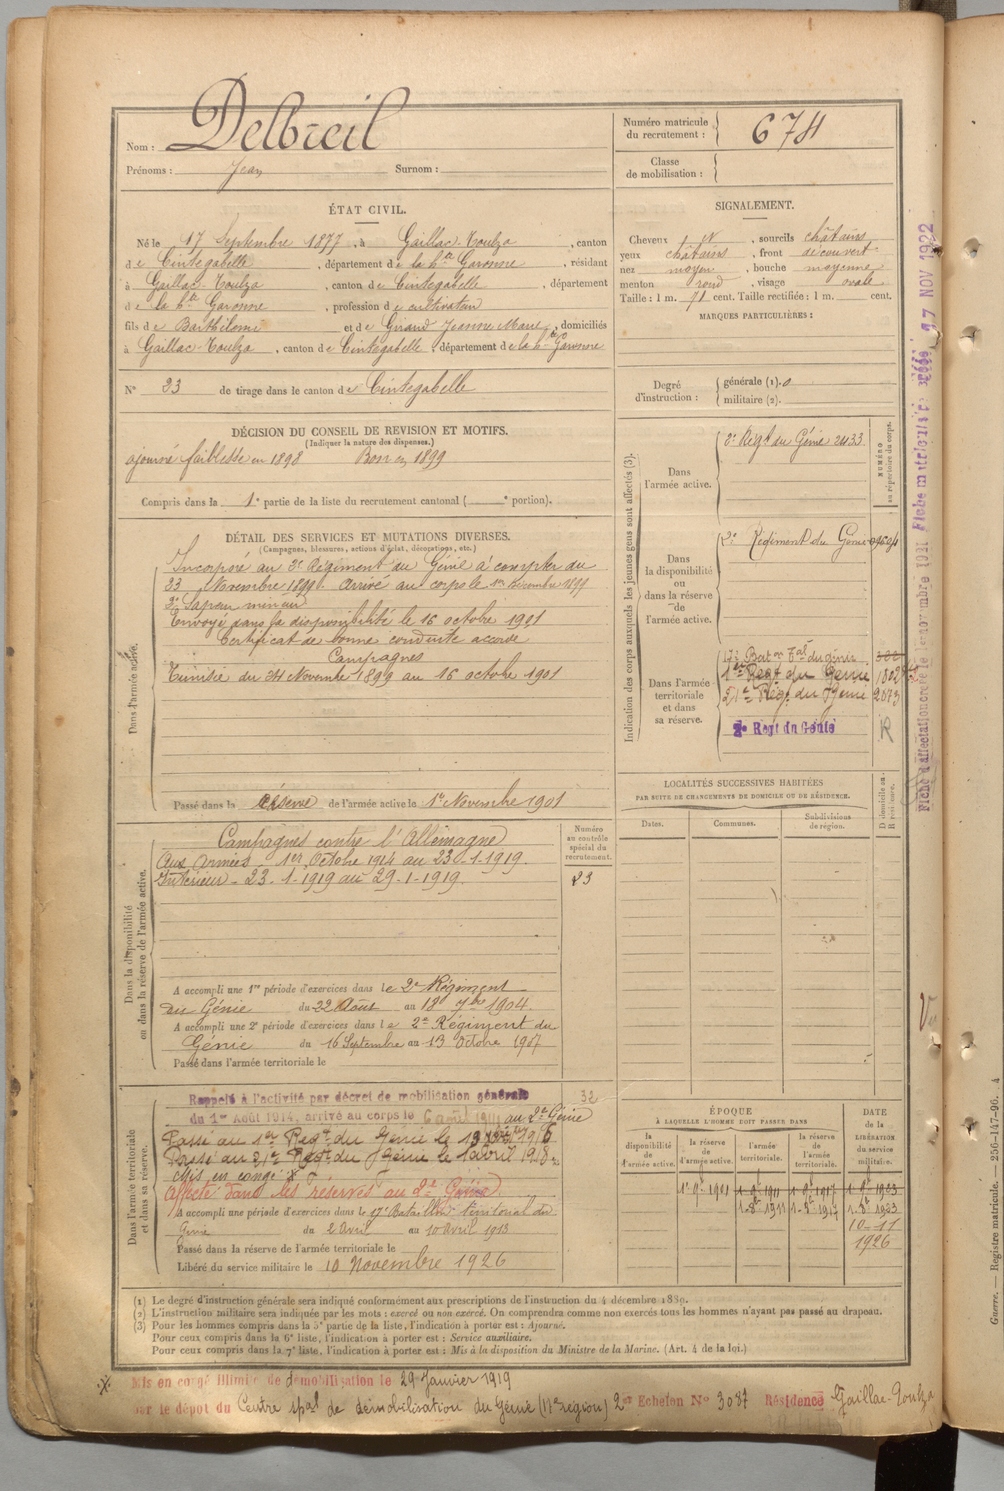 Nom : Delbreil
Prénoms : Jean Surnom :
Numéro matricule du recrutement : 674
Classe de mobilisation :
ÉTAT CIVIL.
Né le 17 Septembre 1877, à Gaillac-Toulza, canton
de Cintegabelle, département de la hte Garonne, résidant
à Gaillac-Toulza, canton de Cintegabelle, département
de la hte Garonne, profession de cultivateur
fils de Barthélemi et de Giraud Jeanne Marie, domiciliés
à Gaillac-Toulza, canton de Cintegabelle, département de la hte Garonne
N° 23 de tirage dans le canton de Cintegabelle
SIGNALEMENT.
Cheveux N, sourcils châtains
yeux châtains, front découvert
nez moyen, bouche moyenne
menton rond, visage ovale
Taille : 1 m. 71 cent. Taille rectifiée : 1 m. cent.
MARQUES PARTICULIÈRES :
Degré d'instruction : générale (1). 0
militaire (2).
DÉCISION DU CONSEIL DE REVISION ET MOTIFS.
(Indiquer la nature des dispenses.)
ajourné faiblesse en 1898 Bon en 1899
Compris dans la 1e partie de la liste du recrutement cantonal ( e portion).
DÉTAIL DES SERVICES ET MUTATIONS DIVERSES.
(Campagnes, blessures, actions d'éclat, décorations, etc.)
Dans l'armée active.
Incorporé au 2e Régiment du Génie à compter du
23 Novembre 1899. Arrivé au corps le 1er Décembre 1899
2e Sapeur mineur
Envoyé dans la disponibilité le 16 octobre 1901
Certificat de bonne conduite accordé
Campagnes
Tunisie du 24 Novembre 1899 au 16 octobre 1901
Passé dans la réserve de l'armée active le 1er Novembre 1901
Indication des corps auxquels les jeunes gens sont affectés (3).
NUMÉRO au répertoire du corps.
Dans l'armée active.
2e Régt du Génie 2433
Dans la disponibilité ou dans la réserve de l'armée active.
2e Régiment du Génie
Dans l'armée territoriale et dans sa réserve.
17e Baton Tal du génie
1er Régt du Génie
21e Rég. du Génie 2073
2e Regt du Génie
R
LOCALITÉS SUCCESSIVES HABITÉES
PAR SUITE DE CHANGEMENTS DE DOMICILE OU DE RÉSIDENCE.
Dates. Communes. Subdivisions de région.
D domicile ou R résidence.
Dans la disponibilité ou dans la réserve de l'armée active.
Campagnes contre l'Allemagne
Aux armées 1er Octobre 1914 au 23-1-1919.
Intérieur - 23-1-1919 au 29-1-1919.
Numéro au contrôle spécial du recrutement.
23
A accompli une 1re période d'exercices dans le 2e Régiment
du Génie du 22 Août au 18 7bre 1904.
A accompli une 2e période d'exercices dans le 2e Régiment du
Génie du 16 Septembre au 13 Octobre 1907
Passé dans l'armée territoriale le
Dans l'armée territoriale et dans sa réserve.
Rappelé à l'activité par décret de mobilisation générale
du 1er Août 1914, arrivé au corps le 6 août 1914 au 2e Génie
32
Passé au 1er Régt du Génie le
Passé au 21e Régt du Génie le 1 avril 1918.
Mis en congé
Affecté dans les réserves au 2e Génie
A accompli une période d'exercices dans le 17e Bataillon territorial du
Génie du 2 Avril au 10 Avril 1913
Passé dans la réserve de l'armée territoriale le
Libéré du service militaire le 10 Novembre 1926
ÉPOQUE
À LAQUELLE L'HOMME DOIT PASSER DANS
la disponibilité de l'armée active. la réserve de l'armée active. l'armée territoriale. la réserve de l'armée territoriale.
DATE de la LIBÉRATION du service militaire.
1-9bre 1901 1-9bre 1911 1-9bre 1917 1-9bre 1923
1-8bre 1911 1-8bre 1917 1-8bre 1923
10-11
1926
(1) Le degré d'instruction générale sera indiqué conformément aux prescriptions de l'instruction du 4 décembre 1889.
(2) L'instruction militaire sera indiquée par les mots : exercé ou non exercé. On comprendra comme non exercés tous les hommes n'ayant pas passé au drapeau.
(3) Pour les hommes compris dans la 5e partie de la liste, l'indication à porter est : Ajourné.
Pour ceux compris dans la 6e liste, l'indication à porter est : Service auxiliaire.
Pour ceux compris dans la 7e liste, l'indication à porter est : Mis à la disposition du Ministre de la Marine. (Art. 4 de la loi.)
Mis en congé illimité de démobilisation le 29 Janvier 1919
par le dépot du Centre spal de démobilisation du Génie (17e région) 2e Echelon N° 3087 Résidence Gaillac-Toulza
17 NOV 1922
Guerre. — Registre matricule. — 256-147-96. 4